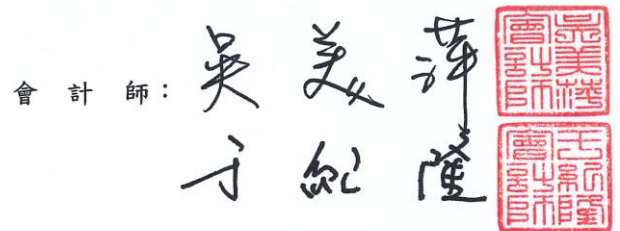 會計師：吳美萍
于紀隆
吳美萍
會計師
于紀隆
會計師